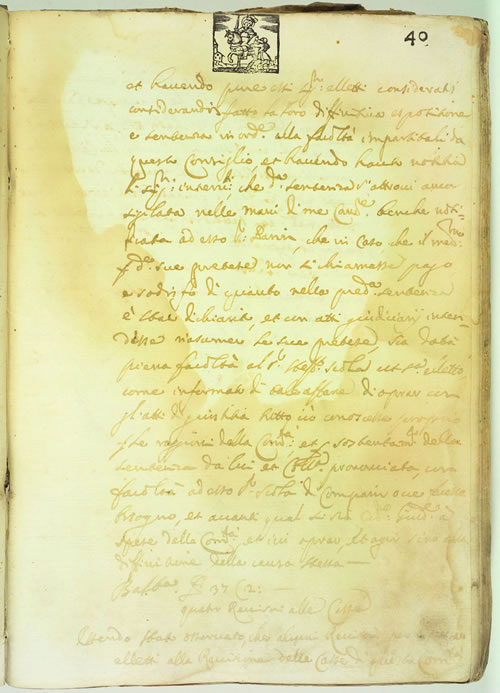 40
et havendo pure essi Sri: elletti considerati
considerandi, fatto la loro diffinitiva espositione
e sentenza in ord.e alla facoltà impartitali da
questo Consiglio, et havendo hauto notitia
li Sig.ri interv.ti, che d.a sentenza s'attrovi anco
sigilata nelle mani di me Canc.re benche noti-
ficata ad esso Sr:, che in caso che il med.mo
p d.e sue pretese non si chiamasse pago
e sodisfo di quanto nella pred.a sentenza
è stat dichiarito, et con atti giudiciarj inten-
desse riasumer le sue pretese, sia data
piena facoltà al Sr. Scola elletto
come informato di tale affare di oprar con
gl'atti di giustitia tutto ciò conoscesse proprio
p le ragioni della Com.tà, et p sostentam.to della
sentenza da lui et pronunciata, con
facoltà ad esso Sr. Scola di comparir ove
bisogno, et avanti qual si sia Giud.e à
spese della Com.tà et ivi oprar et agir sino alla
diffinitione della causa stessa —
Ball.ta P. 37 C. 2:
quatro Revisori alle Casse
Essendo stato osservato, che alcuni Revisori
elletti alla Revisione della Casse di questa Com.tà